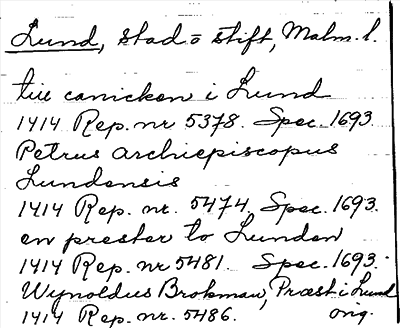 Lund, stad o stift, Malm. l.
till canicken i Lund
1414 Rep. nr 5378. Spec. 1693.
Petrus archiepiscopus
Lundensis
1414 Rep. nr. 5474. Spec. 1693.
en prester to Lunden
1414 Rep. nr 5481. Spec. 1693.
Wynoldus Brokman, Præst i Lund
1414 Rep. nr. 5486. orig.